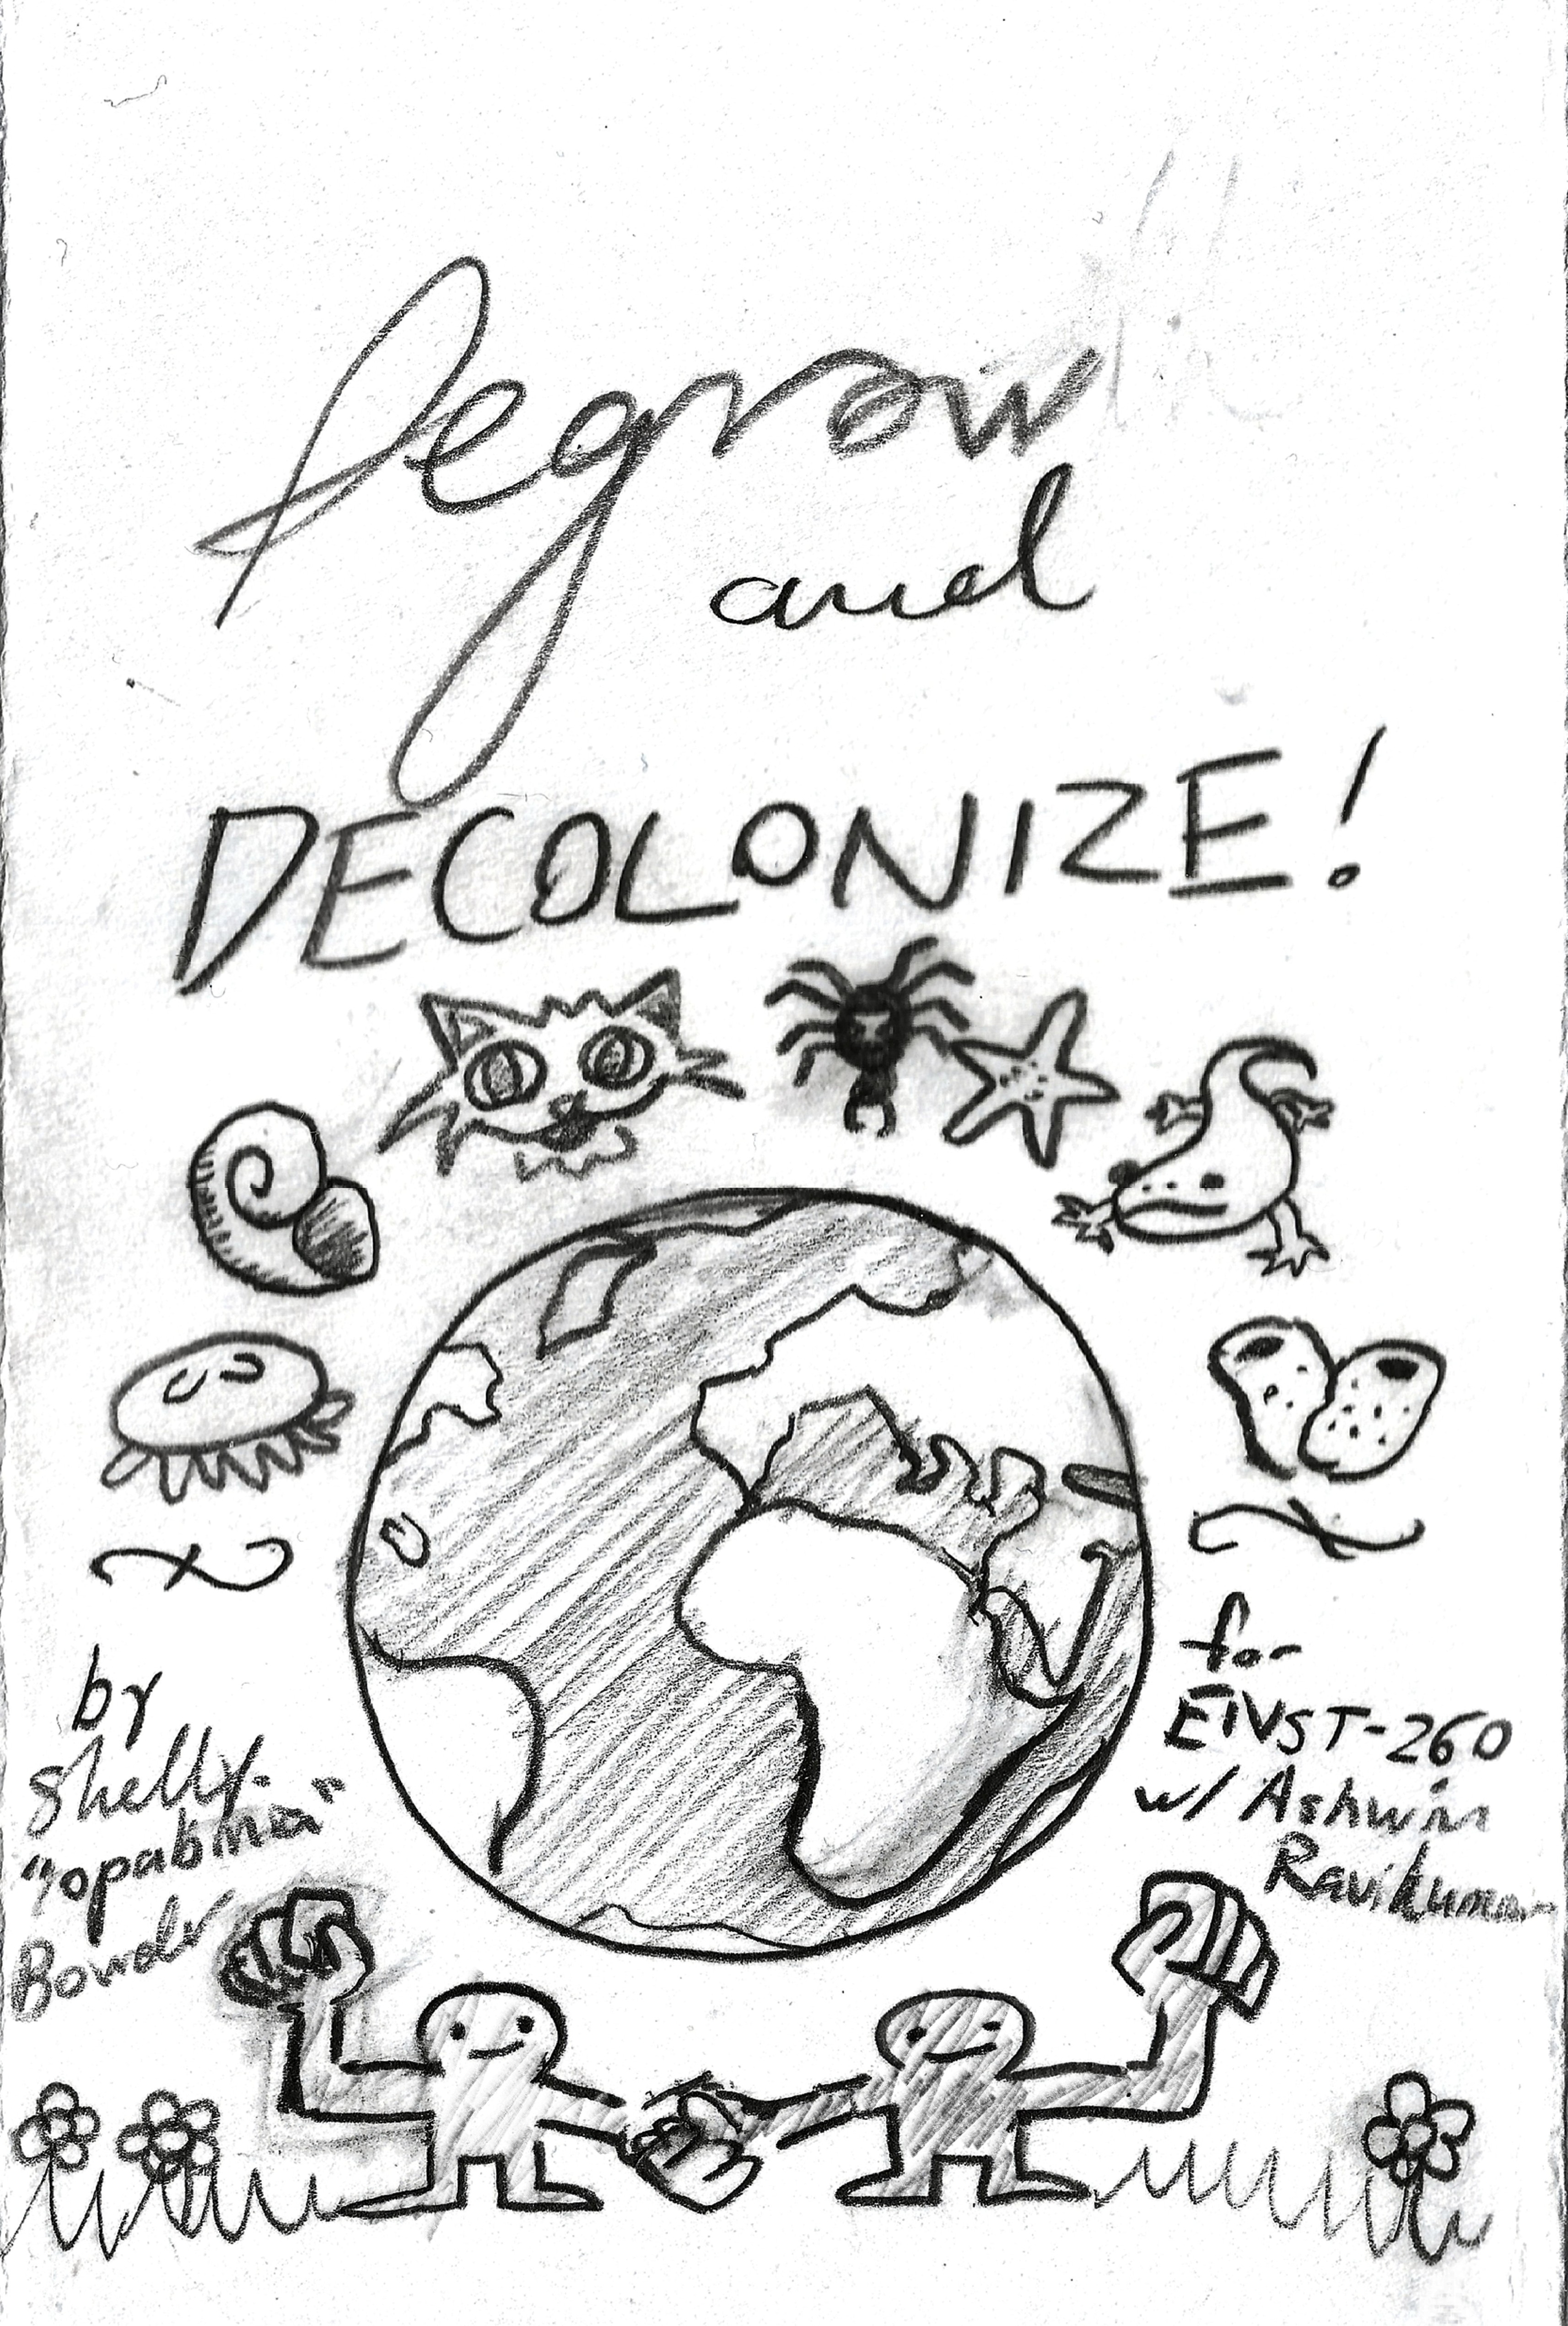 Degrow
and
DECOLONIZE!
by
Shelly
"opabinia"
for
ENVST-260
w/ Ashwin
Ravikumar